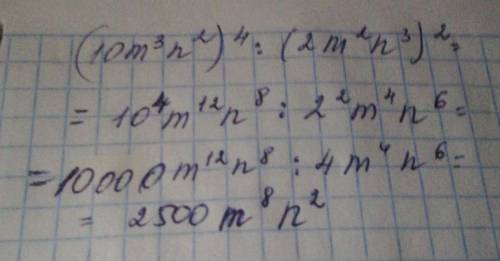 (10m³n²)⁴ : (2m²n³)² =
= 10⁴m¹²n⁸ : 2²m⁴n⁶ =
= 10000m¹²n⁸ : 4m⁴n⁶ =
= 2500m⁸n²